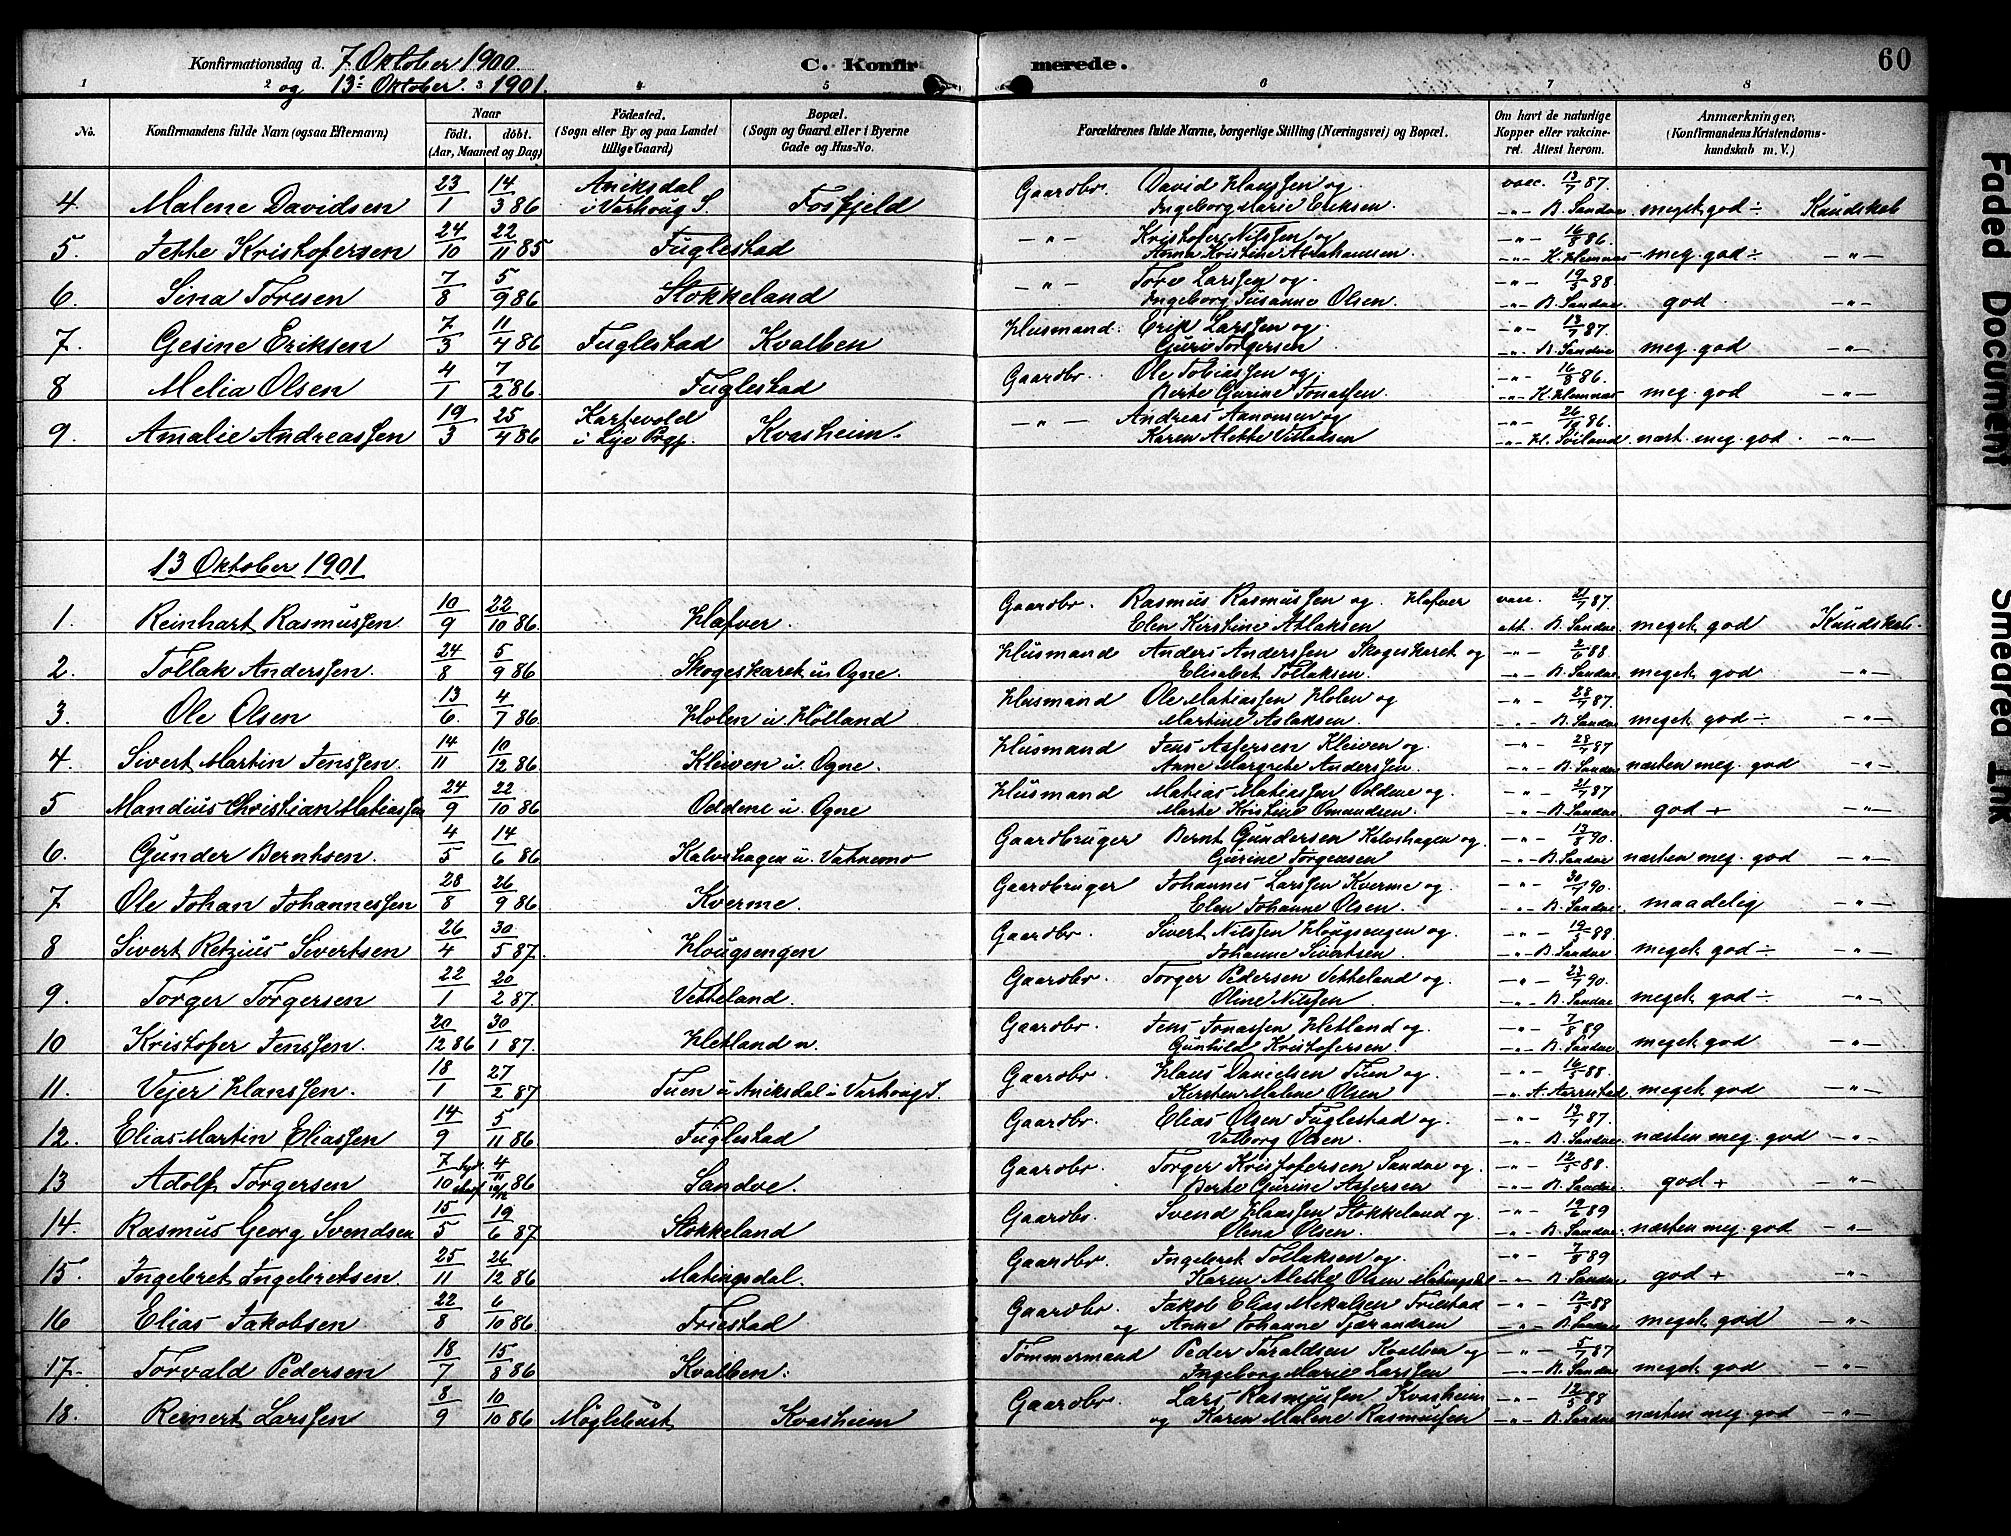 60
Konfirmationsdag d. 7 Oktober 1900
og 13 Oktober 1901.
C. Konfirmerede.
1 2 3 4 5 6 7 8
No. Konfirmandens fulde Navn (ogsaa Efternavn) Naar født. døbt. (Aar, Maaned og Dag) Fødested. (Sogn eller By og paa Landet tillige Gaard) Bopæl. (Sogn og Gaard eller i Byerne Gade og Hus-No. Forældrenes fulde Navne, borgerlige Stilling (Næringsvei) og Bopæl. Om havt de naturlige Kopper eller vakcineret. Attest herom. Anmærkninger. (Konfirmandens Kristendomskundskab m. V.)
4 Malene Davidsen 23/1 14/3 86 Aniksdal i Varhoug S. Fosfjeld Gaardbr. David Hanssen og Ingeborg Marie Eriksen. vacc. 13/7 87 B. Sandve meget god ÷ Kundskab
5. Jette Kristofersen 24/10 22/11 85 Fuglestad —"— Kristofer Nilssen og Anna Kristine Abrahamsen —"— 16/8 86. H. Hemnæs meg. god ÷ —"—
6. Sina Toresen 7/8 5/9 86 Stokkeland —"— Tore Larssen og Ingeborg Susanne Olsen. —"— 19/5 88 B. Sandve god. —"—
7. Gesine Eriksen 7/3 11/4 86 Fuglestad Kvalben Husmand. Erik Larssen og Guro Torgersen —"— 13/7 87. B. Sandve meg. god —"—
8 Melia Olsen 4/1 7/2 86. Fuglestad Gaardbr. Ole Tobiassen og Berte Gurine Jonassen —"— 16/8 86. H. Hemnæs meg. god —"—
9. Amalie Andreassen 19/3 25/4 86 i Lye Prgj. Kvasheim. —"— Andreas Aanonsen og Karen Alette Villadsen —"— 26/9 86. næst. meg. god. —"—
13 Oktober 1901
1. Reinhart Rasmussen 10/9 22/10 86. Hafver. Gaardbr. Rasmus Rasmussen og Hafver Elen Kirstine Atlaksen vacc. 21/7 87. att. B. Sandve meget god Kundskab.
2. Tollak Anderssen. 24/8 5/9 86 Skogeskaret u. Ogne. Husmand Anders Anderssen Skogeskaret og Elisabet Tollaksen. —"— 2/6 88 B. Sandve meget god —"—
3. Ole Olsen 13/6 4/7 86. Holen u. Hølland Husmand Ole Matiassen Holen og Martine Aslaksen. —"— 28/7 87. B. Sandve meget god ÷ —"—
4. Sivert Martin Jenssen. 14/11 10/12 86 Kleiven u. Ogne. Husmand Jens Assersen Kleiven og Anne Margrete Anderssen. —"— 28/7 87 B. Sandve næsten meg. god —"—
5 Mandius Christian Matiassen 24/9 22/10 86 Oddene u. Ogne Husmand Matias Matiassen Oddene og Marte Kristine Omundsen. —"— 21/7 87 B. Sandve god + —"—
6. Gunder Berntsen. 4/5 14/6 86 Kalvshagen u. Vatnemo Gaardbruger Bernt Gundersen Kalvshagen og Gurine Torgersen —"— 13/8 90. B. Sandve næsten meg. god —"—
7 Ole Johan Johannessen 28/8 26/9 86 Kverme. Gaardbruger Johannes Larssen Kverme og Elen Johanne Olsen. —"— 30/7 90. B. Sandve. maadelig —"—
8 Sivert Retzius Sivertsen 26/4 30/5 87. Hougsengen Gaardbr. Sivert Nilssen Hougsengen og Johanne Sivertsen —"— 19/5 88. B. Sandve meget god ÷ —"—
9. Torger Torgersen 22/1 20/2 87. Vetteland. Gaardbr. Torger Pedersen Vetteland og Oline Nilssen. —"— 23/7 90. B. Sandve. meget god ÷ —"—
10 Kristofer Jenssen. 20/12 86 30/1 87. Hetland n. Gaardbr. Jens Jonassen Hetland og Gunhild Kristofersen. —"— 7/8 89 B. Sandve. meget god —"—
11. Vejer Hanssen. 18/1 27/2 87 Tuen u. Aniksdal i Varhoug S. Gaardbr. Hans Danielsen Tuen og Kirsten Malene Olsen —"— 16/5 88. A. Aarrestad meget god —"—
12. Elias Martin Eliassen 14/9 5/11 86. Fuglestad Gaardbr. Elias Olsen Fuglestad og Valborg Olsen. —"— 13/7 87. B. Sandve næsten meg. god —"—
13 Adolf Torgersen 7/10 4/11 86 Sandve. Gaardbr. Torger Kristofersen Sandve og Berte Gurine Assersen —"— 12/5 88. B. Sandve god + —"—
14. Rasmus Georg Svendsen 15/5 19/6 87 Stokkeland Gaardbr. Svend Hanssen Stokkeland og Olena Olsen. —"— 19/6 89 B. Sandve næsten meg. god —"—
15. Ingebret Ingebretsen. 25/11 26/12 86 Matingsdal. Gaardbr. Ingebret Tollaksen og Karen Alette Olsen Matingsdal —"— 7/8 89 B. Sandve god + —"—
16 Elias Jakobsen 22/8 6/10 86. Friestad Gaardbr. Jakob Elias Mekalsen Friestad og Anne Johanne Tjærandsen —"— 12/5 88 B. Sandve meget god —"—
17. Torvald Pedersen 18/7 15/8 86 Kvalben. Tømmermand Peder Taraldsen Kvalben og Ingeborg Marie Larssen —"— 5/7 87 B. Sandve meget god —"—
18. Reinert Larssen 8/9 10/10 86 Møglebust Kvasheim Gaardbr. Lars Rasmussen Kvasheim og Karen Malene Rasmussen —"— 12/5 88 B. Sandve næsten meg. god —"—
Faded Document
Smeared Ink